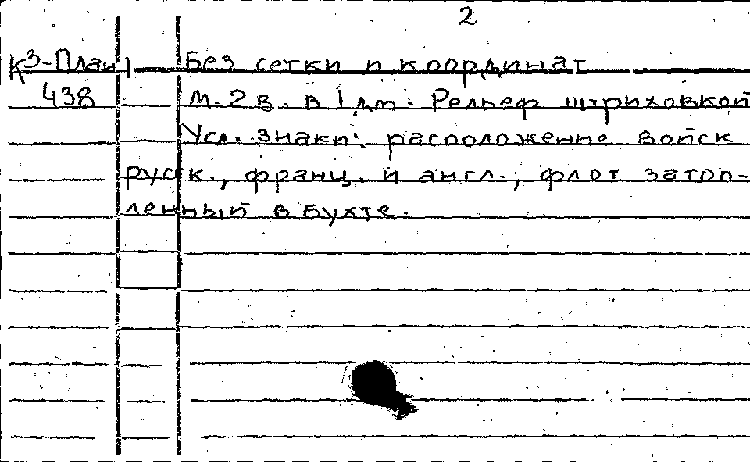 2
К3-План Без сетки и координат
438 М. 2 в. в 1 дм. Рельеф штриховкой
Усл. знаки: расположение войск
русск., франц. и англ., флот затоп-
ленный в бухте.